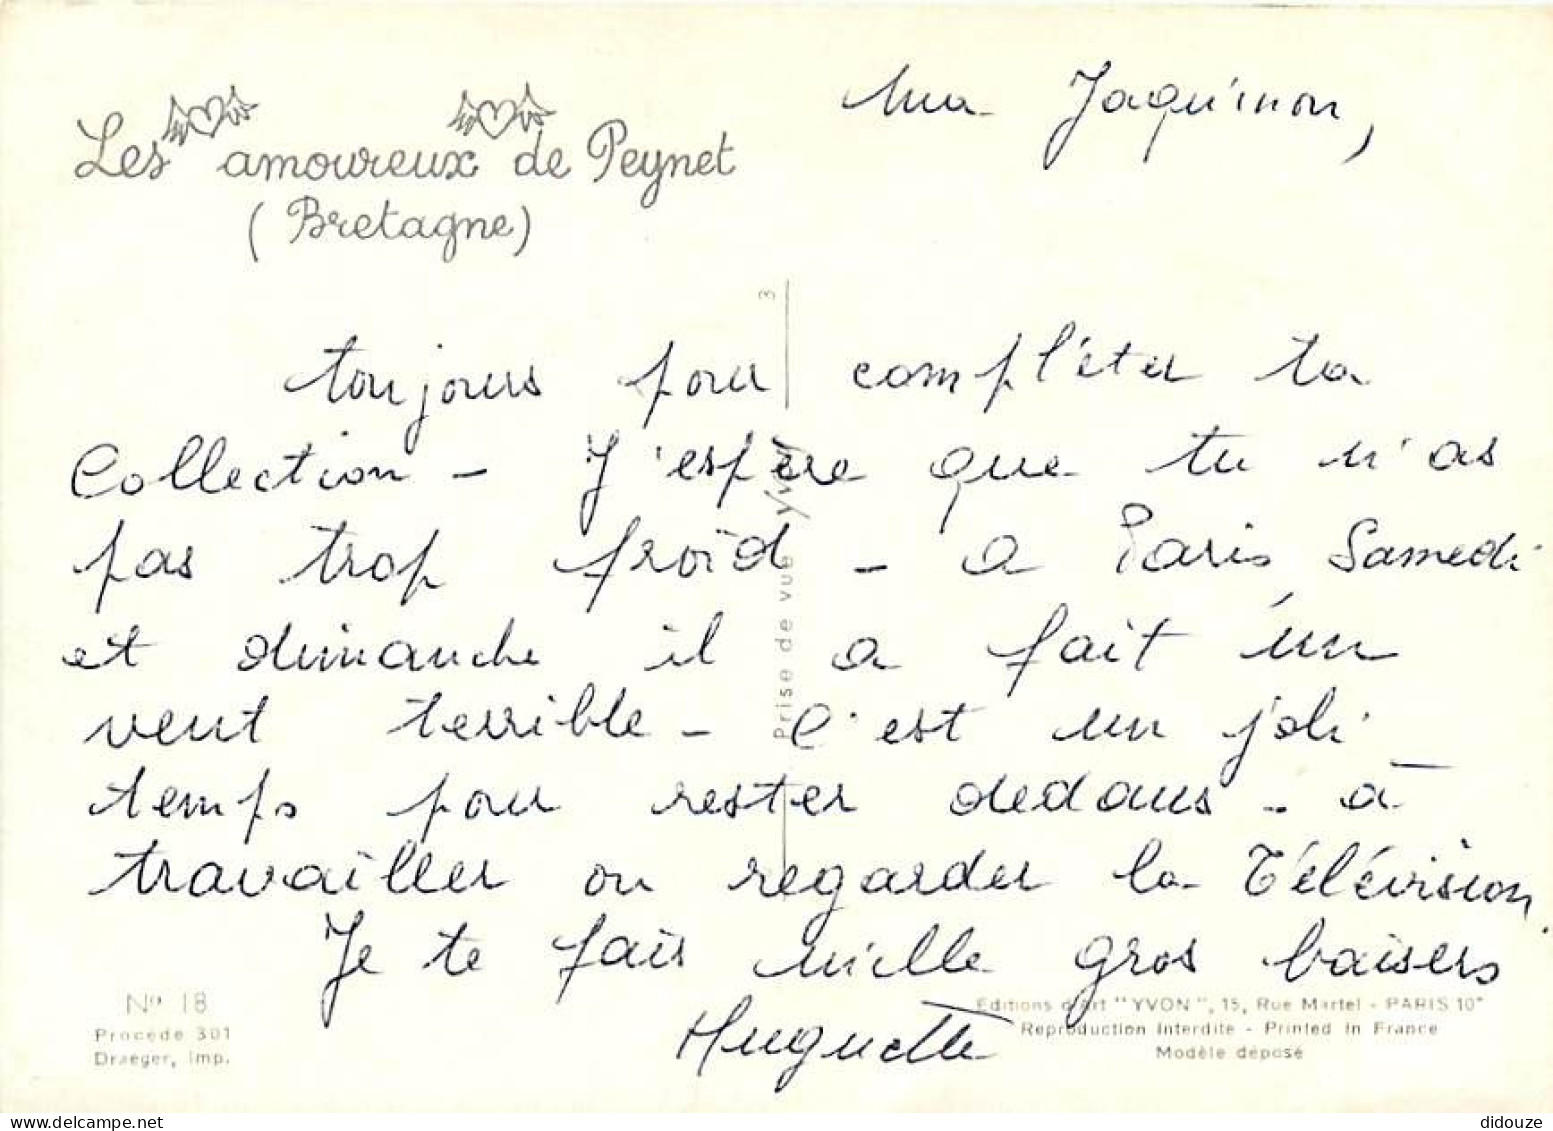 Les amoureux de Peynet
(Bretagne)
Ma Jaquinon,
toujours pour compléter ta
Collection - J'espère que tu n'as
pas trop froïd - a Paris Samedi
et dimanche il a fait un
vent terrible - C'est un joli
temps pour rester dedans - à
travailler ou regarder la Télévision.
Je te fais mille gros baisers
Huguette
3
Prise de vue Yvon
Nº 18
Procédé 301
Draeger, imp.
Editions d'Art "YVON", 15, Rue Martel - PARIS 10e
Reproduction Interdite - Printed in France
Modèle déposé
didouze